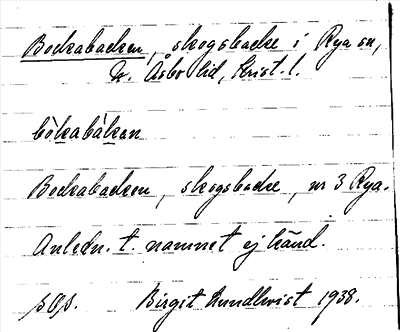 Bockabacken, skogsbacke i Rya sn,
N. Åsbo hd, Krist. l.
bòkabákan
Bockabacken, skogsbacke, nr 3 Rya.
Anledn. t. namnet ej känd.
Birgit Lundkvist 1938.